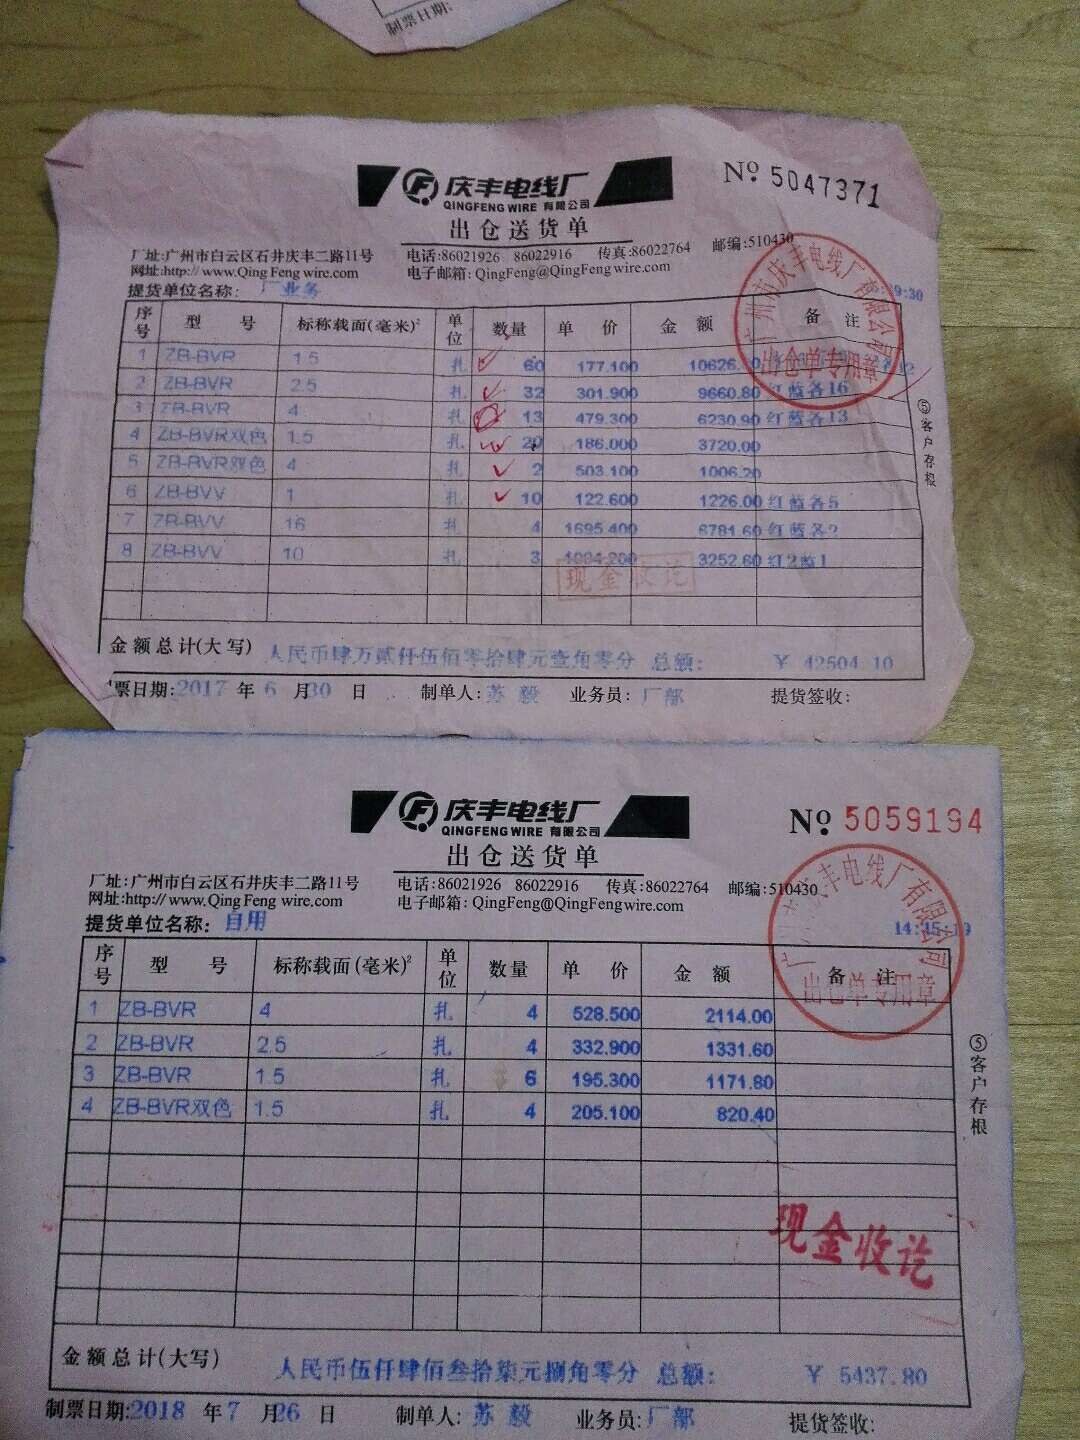 制票日期:
庆丰电线厂
QINGFENG WIRE 有限公司
№ 5047371
出仓送货单
厂址:广州市白云区石井庆丰二路11号 电话:86021926 86022916 传真:86022764 邮编:510430
网址:http://www.QingFengwire.com 电子邮箱:QingFeng@QingFengwire.com
提货单位名称: 厂业务 9:30
广州市庆丰电线厂有限公司
出仓单专用章
序号 型号 标称截面(毫米)² 单位 数量 单价 金额 备注
1 ZB-BVR 1.5 扎 60 177.100 10626.
2 ZB-BVR 2.5 扎 32 301.900 9660.80 红蓝各16
3 ZB-BVR 4 扎 13 479.300 6230.90 红蓝各13
4 ZB-BVR双色 1.5 扎 20 186.000 3720.00
5 ZB-BVR双色 4 扎 2 503.100 1006.20
6 ZB-BVV 1 扎 10 122.600 1226.00 红蓝各5
7 ZB-BVV 16 扎 4 1695.400 6781.60 红蓝各2
8 ZB-BVV 10 扎 3 3252.60 红2蓝1
现金收讫
金额总计(大写) 人民币肆万贰仟伍佰零拾肆元壹角零分 总额: ¥ 42504.10
票日期:2017 年 6 月30 日 制单人:苏毅 业务员:厂部 提货签收:
⑤客户存根
庆丰电线厂
QINGFENG WIRE 有限公司
№ 5059194
出仓送货单
厂址:广州市白云区石井庆丰二路11号 电话:86021926 86022916 传真:86022764 邮编:510430
网址:http://www.QingFengwire.com 电子邮箱:QingFeng@QingFengwire.com
提货单位名称: 自用 14:15:19
庆丰电线厂有限公司
出仓单专用章
序号 型号 标称截面(毫米)² 单位 数量 单价 金额 备注
1 ZB-BVR 4 扎 4 528.500 2114.00
2 ZB-BVR 2.5 扎 4 332.900 1331.60
3 ZB-BVR 1.5 扎 6 195.300 1171.80
4 ZB-BVR双色 1.5 扎 4 205.100 820.40
现金收讫
金额总计(大写) 人民币伍仟肆佰叁拾柒元捌角零分 总额: ¥ 5437.80
制票日期:2018 年 7 月26 日 制单人:苏毅 业务员:厂部 提货签收:
⑤客户存根